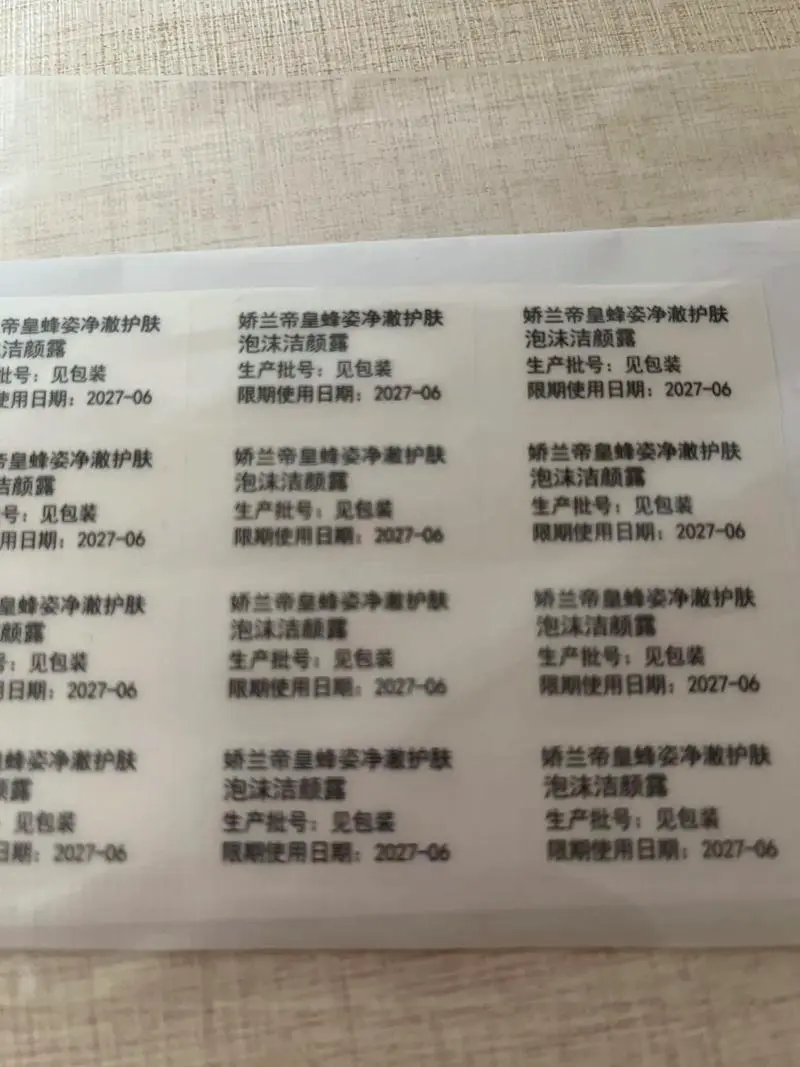 帝皇蜂姿净澈护肤
洁颜露
批号：见包装
使用日期：2027-06
娇兰帝皇蜂姿净澈护肤
泡沫洁颜露
生产批号：见包装
限期使用日期：2027-06
娇兰帝皇蜂姿净澈护肤
泡沫洁颜露
生产批号：见包装
限期使用日期：2027-06
帝皇蜂姿净澈护肤
洁颜露
号：见包装
用日期：2027-06
娇兰帝皇蜂姿净澈护肤
泡沫洁颜露
生产批号：见包装
限期使用日期：2027-06
娇兰帝皇蜂姿净澈护肤
泡沫洁颜露
生产批号：见包装
限期使用日期：2027-06
皇蜂姿净澈护肤
颜露
号：见包装
用日期：2027-06
娇兰帝皇蜂姿净澈护肤
泡沫洁颜露
生产批号：见包装
限期使用日期：2027-06
娇兰帝皇蜂姿净澈护肤
泡沫洁颜露
生产批号：见包装
限期使用日期：2027-06
蜂姿净澈护肤
颜露
：见包装
日期：2027-06
娇兰帝皇蜂姿净澈护肤
泡沫洁颜露
生产批号：见包装
限期使用日期：2027-06
娇兰帝皇蜂姿净澈护肤
泡沫洁颜露
生产批号：见包装
限期使用日期：2027-06